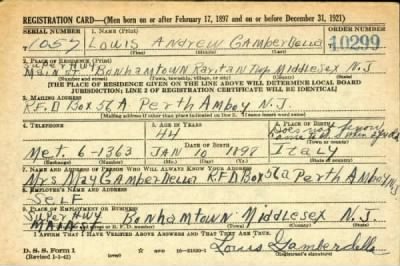 REGISTRATION CARD—(Men born on or after February 17, 1897 and on or before December 31, 1921)
SERIAL NUMBER 1. NAME (Print) ORDER NUMBER
T 1057 LOUIS ANDREW GAMBERDELLA 10299
(First) (Middle) (Last)
2. PLACE OF RESIDENCE (Print)
SUPER HWY
MAIN ST. BONHAMTOWN RARITAN TWP MIDDLESEX N.J.
(Number and street) (Town, township, village, or city) (County) (State)
[THE PLACE OF RESIDENCE GIVEN ON THE LINE ABOVE WILL DETERMINE LOCAL BOARD
JURISDICTION; LINE 2 OF REGISTRATION CERTIFICATE WILL BE IDENTICAL]
3. MAILING ADDRESS
R.F.D BOX 56A PERTH AMBOY N.J.
[Mailing address if other than place indicated on line 2. If same insert word same]
4. TELEPHONE 5. AGE IN YEARS 6. PLACE OF BIRTH
44 Does not know
MET. 6-1363 DATE OF BIRTH
JAN 10 1898 ITALY
(Exchange) (Number) (Mo.) (Day) (Yr.) (State or country)
7. NAME AND ADDRESS OF PERSON WHO WILL ALWAYS KNOW YOUR ADDRESS
MRS MAY GAMBERDELLA R.F.D BOX 56A PERTH AMBOY N.J
8. EMPLOYER'S NAME AND ADDRESS
SELF
9. PLACE OF EMPLOYMENT OR BUSINESS
SUPER HWY
MAIN ST BONHAMTOWN MIDDLESEX N.J.
(Number and street or R. F. D. number) (Town) (County) (State)
I AFFIRM THAT I HAVE VERIFIED ABOVE ANSWERS AND THAT THEY ARE TRUE.
D. S. S. Form 1
(Revised 1-1-42) Louis Gamberdella
(Registrant's signature)